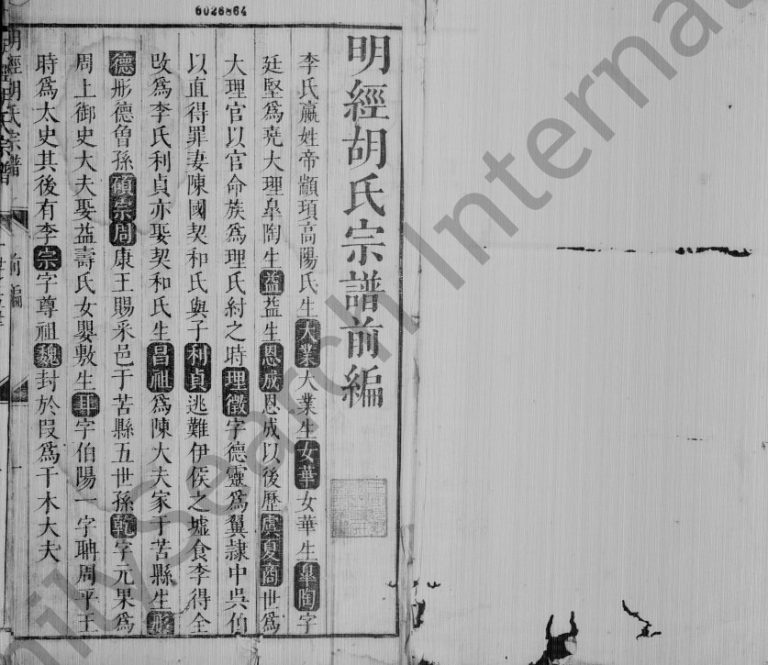 6026864
明經胡氏宗譜前編
李氏嬴姓帝顓頊高陽氏生大業大業生女華女華生臯陶字
廷堅為堯大理臯陶生益益生恩成恩成以後歷虞夏商世為
大理官以官命族為理氏紂之時理徵字德靈為翼隸中吳伯
以直得罪妻陳國契和氏與子利貞逃難伊侯之墟食李得全
改為李氏利貞亦娶契和氏生昌祖為陳大夫家于苦縣生彤
德彤德魯孫碩宗周康王賜采邑于苦縣五世孫乾字元果為
周上御史大夫娶益壽氏女嬰敷生耳字伯陽一字聃周平王
時為太史其後有李宗字尊祖魏封於段為干木大夫
明經胡氏宗譜
前編
FamilySearch International